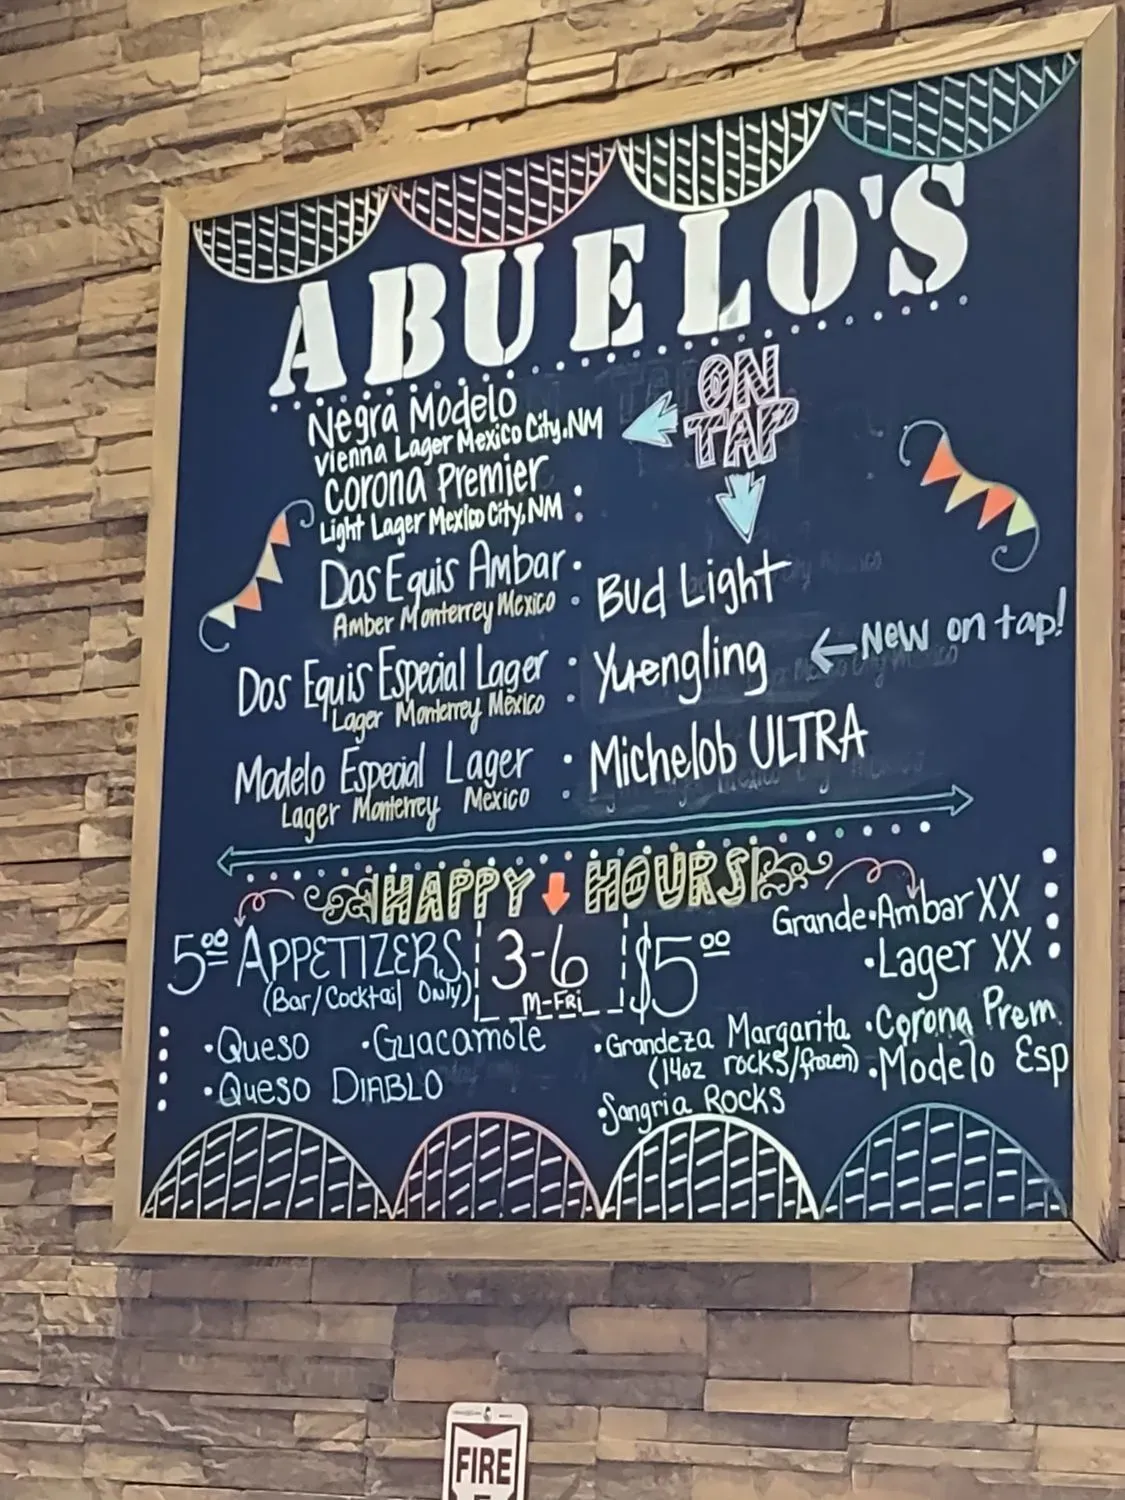 ABUELO'S
ON
TAP
Negra Modelo
Vienna Lager Mexico City, NM
Corona Premier
Light Lager Mexico City, NM
Dos Equis Ambar
Amber Monterrey Mexico
Dos Equis Especial Lager
Lager Monterrey Mexico
Modelo Especial Lager
Lager Monterrey Mexico
Bud Light
Yuengling
←New on tap!
Michelob ULTRA
HAPPY HOURS
5.00 APPETIZERS
(Bar/Cocktail Only)
•Queso •Guacamole
•Queso DIABLO
3-6
M-Fri
$5.00
•Grandeza Margarita
(14oz rocks/frozen)
•Sangria Rocks
Grande•Ambar XX
•Lager XX
•Corona Prem
•Modelo Esp
FIRE